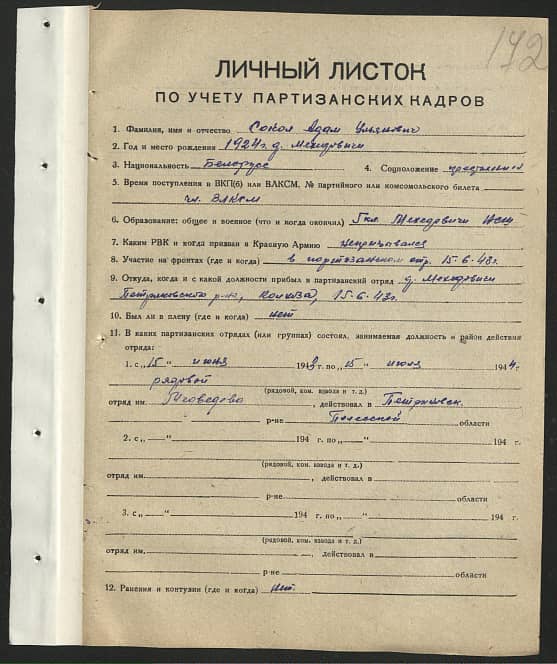 172
ЛИЧНЫЙ ЛИСТОК
ПО УЧЕТУ ПАРТИЗАНСКИХ КАДРОВ
1. Фамилия, имя и отчество Сокол Адам Ульянович
2. Год и место рождения 1924г. д. Мехедовичи
3. Национальность Белорус 4. Соцположение
5. Время поступления в ВКП(б) или ВЛКСМ, № партийного или комсомольского билета
чл. ВЛКСМ
6. Образование: общее и военное (что и когда окончил) 5кл. Мехедовичи нет
7. Каким РВК и когда призван в Красную Армию непризывался
8. Участие на фронтах (где и когда) в партизанском отр. 15-6-43г.
9. Откуда, когда и с какой должности прибыл в партизанский отряд д. Мехедовичи
Петриковского р-на, колхоза, 15-6-43г.
10. Был ли в плену (где и когда) нет
11. В каких партизанских отрядах (или группах) состоял, занимаемая должность и район действия
отряда:
1. с „15 “ июня 1943 г. по „15 “ июля 1944 г.
рядовой
(рядовой, ком. взвода и т. д.)
отряд им. Медведова, действовал в Петриковск.
р-не Полесской области
2. с „ “ 194 г. по „ “ 194 г.
(рядовой, ком. взвода и т. д.)
отряд им. , действовал в
р-не области
3. с „ “ 194 г. по „ “ 194 г.
(рядовой, ком. взвода и т. д.)
отряд им. , действовал в
р-не области
12. Ранения и контузии (где и когда) нет.